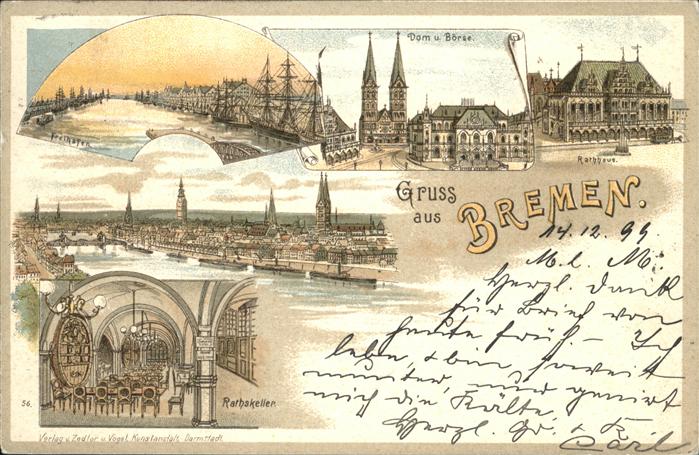 Freihafen.
Dom u. Börse.
Rathhaus.
Gruss
aus
BREMEN.
14.12.99
M. l. M.
Herzl. Dank
für Brief von
heute früh. – Ich
lebe, eben soweit
munter, nur genirt
mich die Kälte.
Herzl. Gr. & K.
Carl
56.
Rathskeller.
Verlag v. Zedler u. Vogel, Kunstanstalt, Darmstadt.